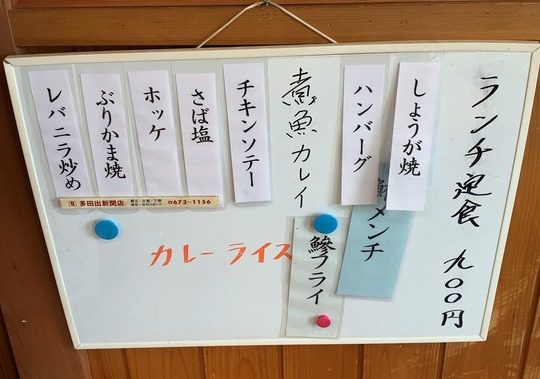 ランチ定食 九〇〇円
しょうが焼
メンチ
ハンバーグ
煮魚カレイ
鰺フライ
チキンソテー
さば塩
ホッケ
ぶりかま焼
レバニラ炒め
カレーライス
多田出新聞店
☎673-1156